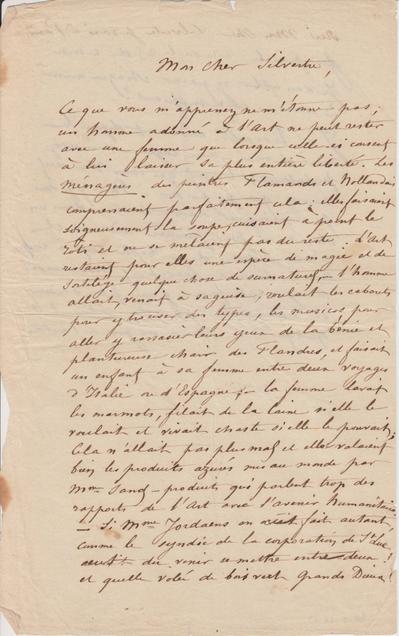 Mon cher Silvestre,
Ce que vous m'apprenez ne m'étonne pas;
un homme adonné à l'Art ne peut rester
avec une femme que lorsque celle-ci consent
à lui laisser sa plus entière liberté. Les
ménagères des peintres Flamands et Hollandais
comprenaient parfaitement cela: elles faisaient
soigneusement la soupe, cuisaient à point le
rôti et ne se mêlaient pas du reste. L'Art
restait pour elles une espèce de magie et de
sortilège quelque chose de surnaturel, — l'homme
allait, venait à sa guise, roulait les cabarets
pour y trouver des types, les musicos pour
aller y rassasier leurs yeux de la bonne et
plantureuse chair des Flandres, et faisait
un enfant à sa femme entre deux voyages
d'Italie ou d'Espagne; — la femme lavait
les marmots, filait de la laine si elle le
voulait et vivait chaste si elle le pouvait;
Cela n'allait pas plus mal et elles valaient
bien les produits mis au monde par
Mme Sand — produits qui parlent trop des
rapports de l'Art avec l'avenir humanitaire
— Si Mme Jordaens en avait fait autant,
comme le syndic de la corporation de St Luc
aurait du venir se mettre entre deux!
et quelle volée de bois vert Grands Dieux!